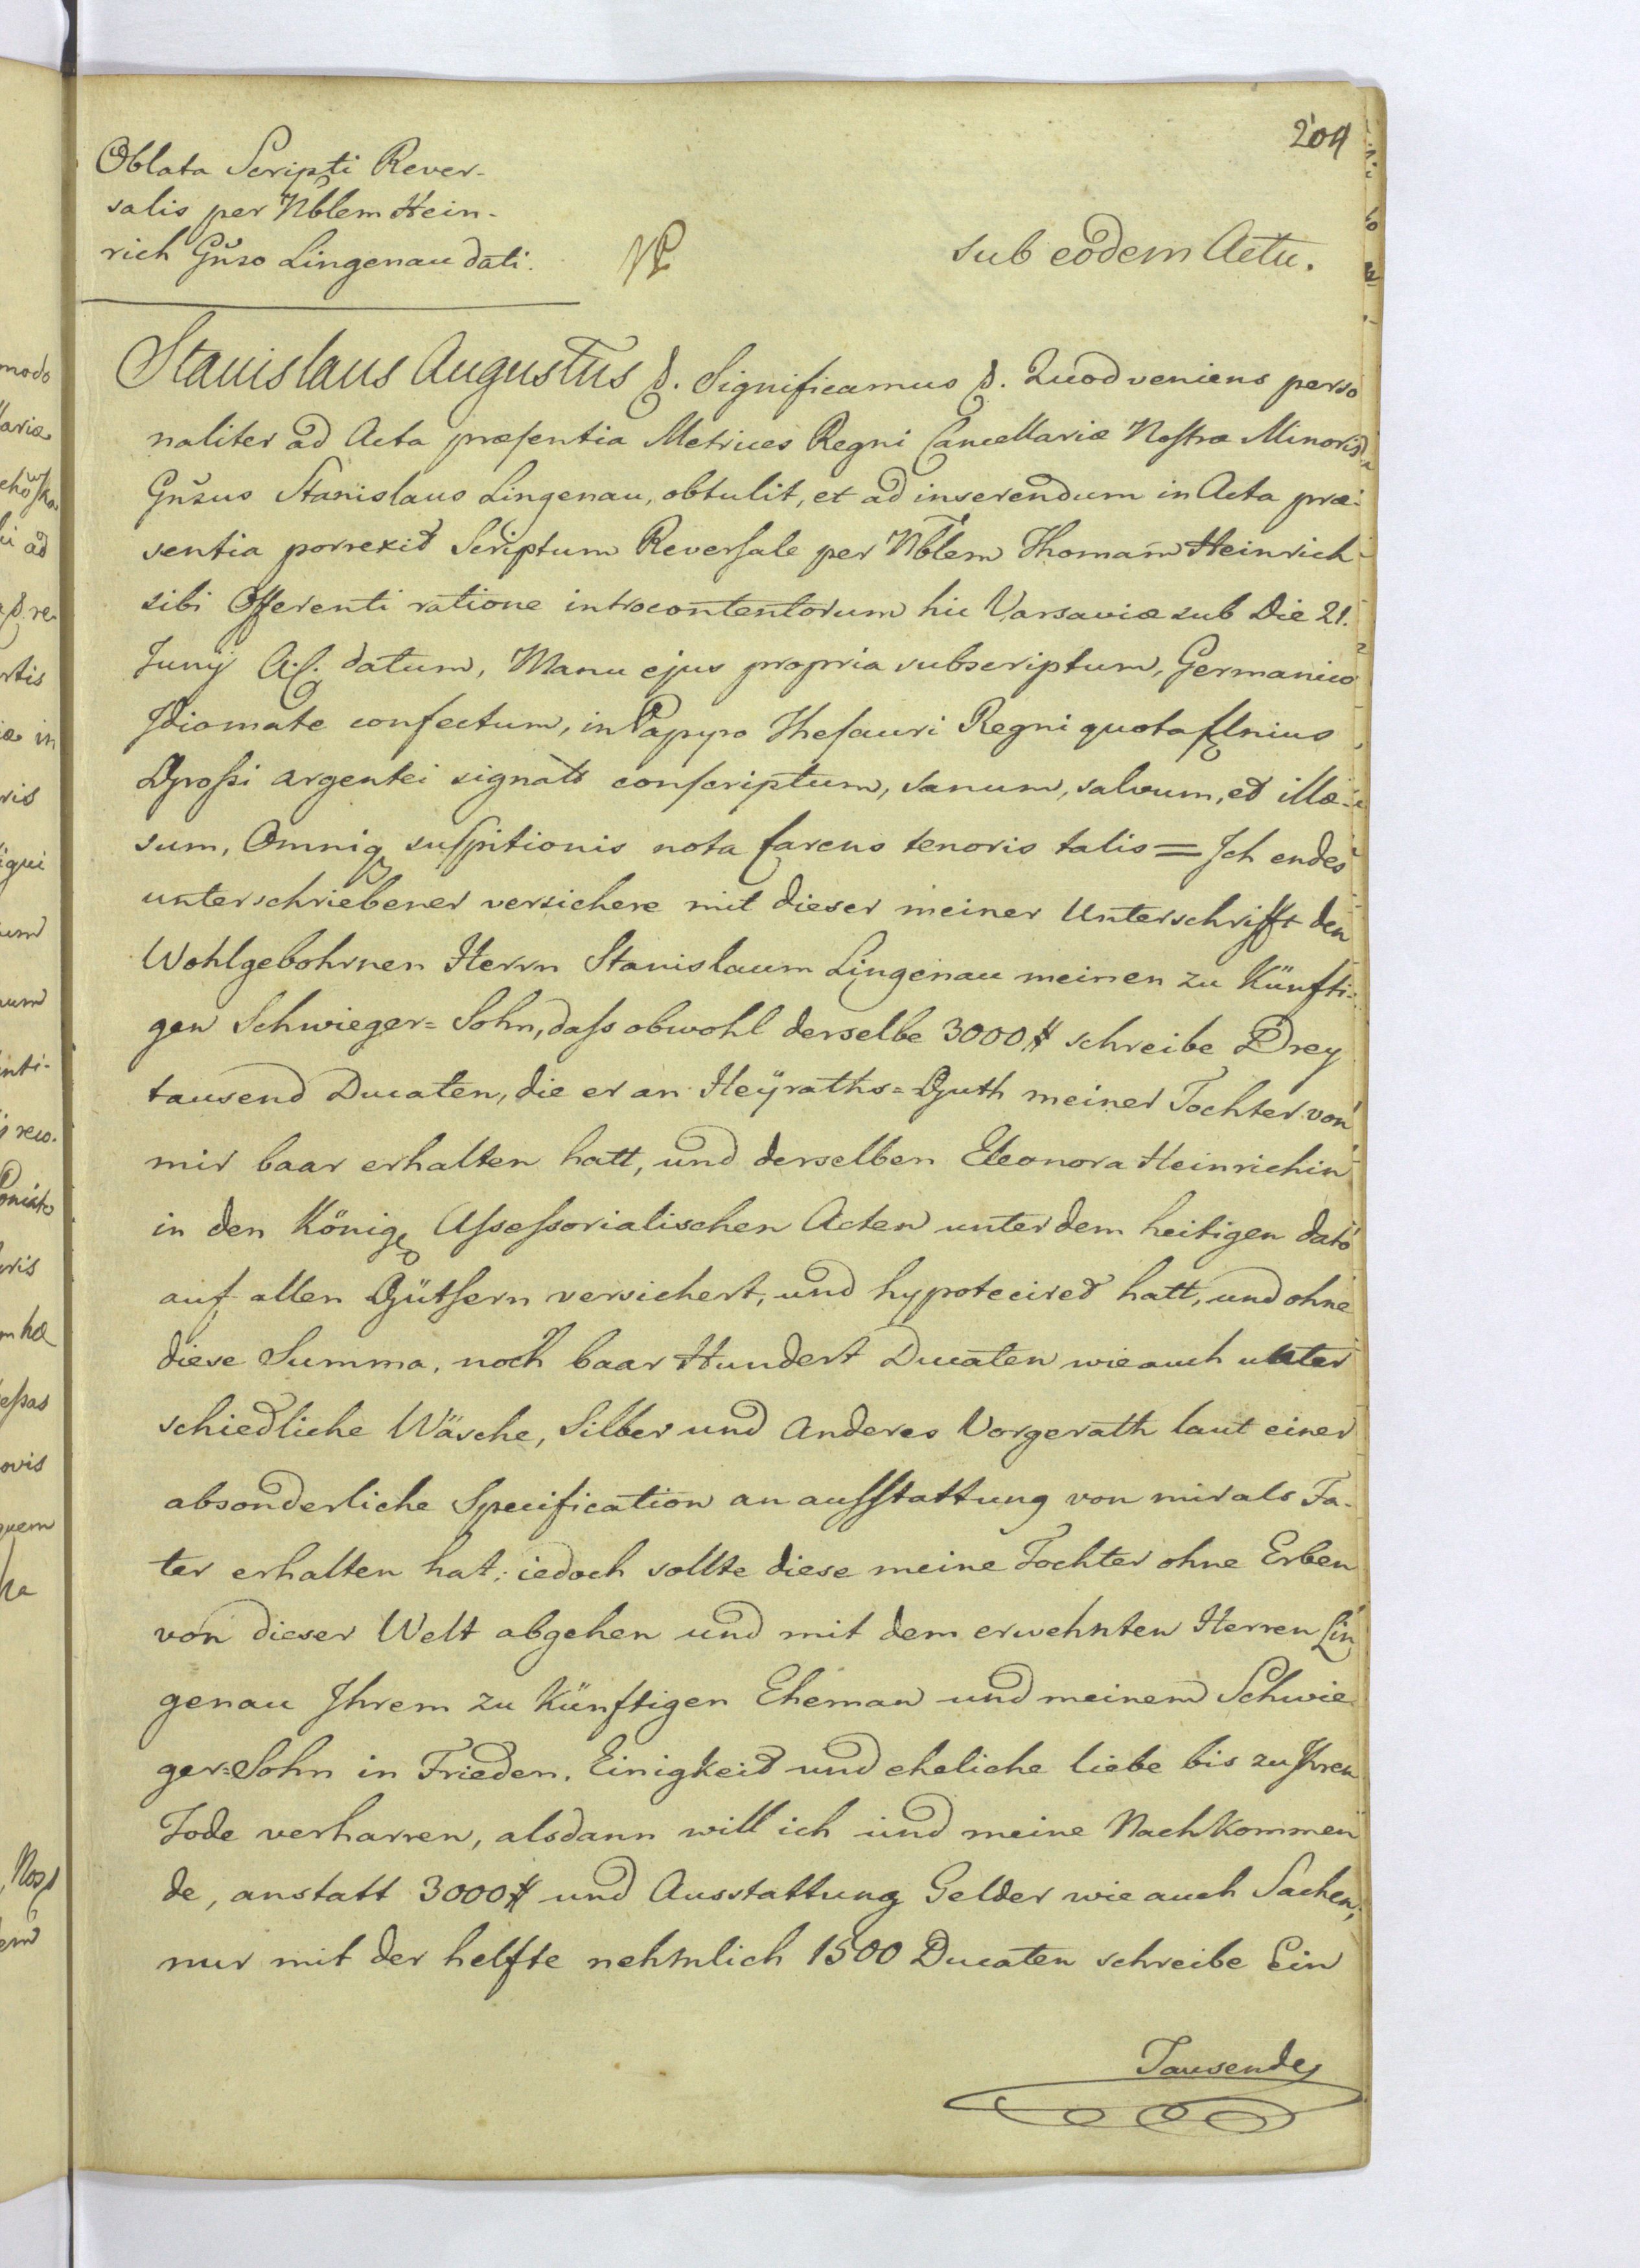 209
Oblata Scripti Rever-
salis per Nblem Hein-
rich Gnŝo Lingenau dati.
sub eodem Actu.
Stanislaus Augustus &. Significamus &. Quod veniens perso
naliter ad Acta præsentia Metrices Regni Cancellariæ Nostræ Minoris
Gnŝus Stanislaus Lingenau, obtulit, et ad inserendum in Acta præ-
sentia porrexit Scriptum Reversale per Nblem Thomam Heinrich
sibi Offerenti ratione introcontentorum hic Varsaviæ sub Die 21.
Junij A: C: datum, Manu ejus propria subscriptum, Germanico
Idiomate confectum, in Papyro Thesauri Regni quota flnius
Grossi argentei signato conscriptum, sanum, salvum, et illæ-
sum, Omniq suspitionis nota carens tenoris talis = Ich endes
unterschriebener versichere mit dieser meiner Unterschrifft den
Wohlgebohrnen Herrn Stanislaum Lingenau meinen zu Künfti-
gen Schwieger=Sohn, dass obwohl derselbe 3000 # schreibe Drey
tausend Ducaten, die er an Heÿraths=Guth meiner Tochter von
mir baar erhalten hatt, und derselben Eleonora Heinrichin
in den König Assessorialischen Acten unter dem heitigen dato
auf allen Gütsern versichert, und hypotecired hatt, und ohne
diese Summa, noch baar Hundert Ducaten wie auch unter
schiedliche Wäsche, Silber und Anderes Vorgerath laut einer
absonderliche Specification an ausstattung von mir als Fa-
ter erhalten hat: iedoch sollte diese meine Tochter ohne Erben
von dieser Welt abgehen und mit dem erwehnten Herren Lin
genau Ihrem zu Künftigen Eheman und meinem Schwie
ger=Sohn in Frieden, Einigkeit und eheliche liebe bis zu Ihren
Tode verharren, alsdann will ich und meine Nachkommen
de, anstatt 3000 # und Ausstattung Gelder wie auch Sachen,
nur mit der helfte nehmlich 1500 Ducaten schreibe Ein
Tausende